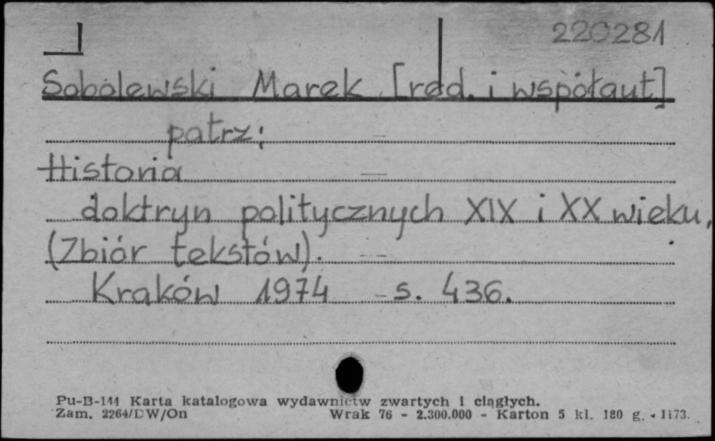 220281
Sobolewski Marek [red. i współaut]
patrz:
Historia
doktryn politycznych XIX i XX wieku.
(Zbiór tekstów).
Kraków 1974 - s. 436.
Pu-B-141 Karta katalogowa wydawnictw zwartych i ciągłych.
Zam. 2264/DW/On Wrak 76 - 2.300.000 - Karton 5 kl. 180 g. - 1173.